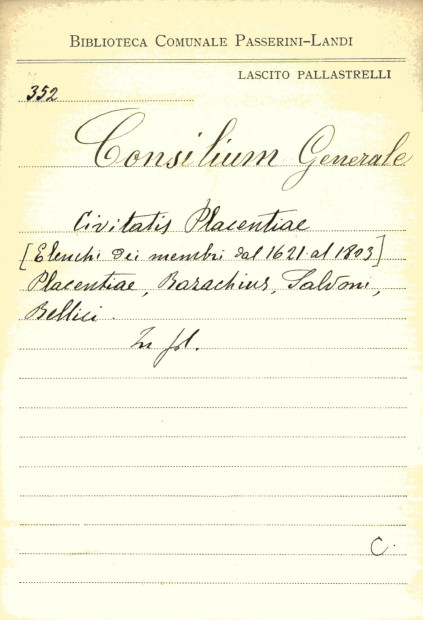 BIBLIOTECA COMUNALE PASSERINI-LANDI
LASCITO PALLASTRELLI
352
Consilium Generale
Civitatis Placentiae
[Elenchi dei membri dal 1621 al 1803]
Placentiae, Barachius, Salvoni,
Bellici.
In fol.
C.